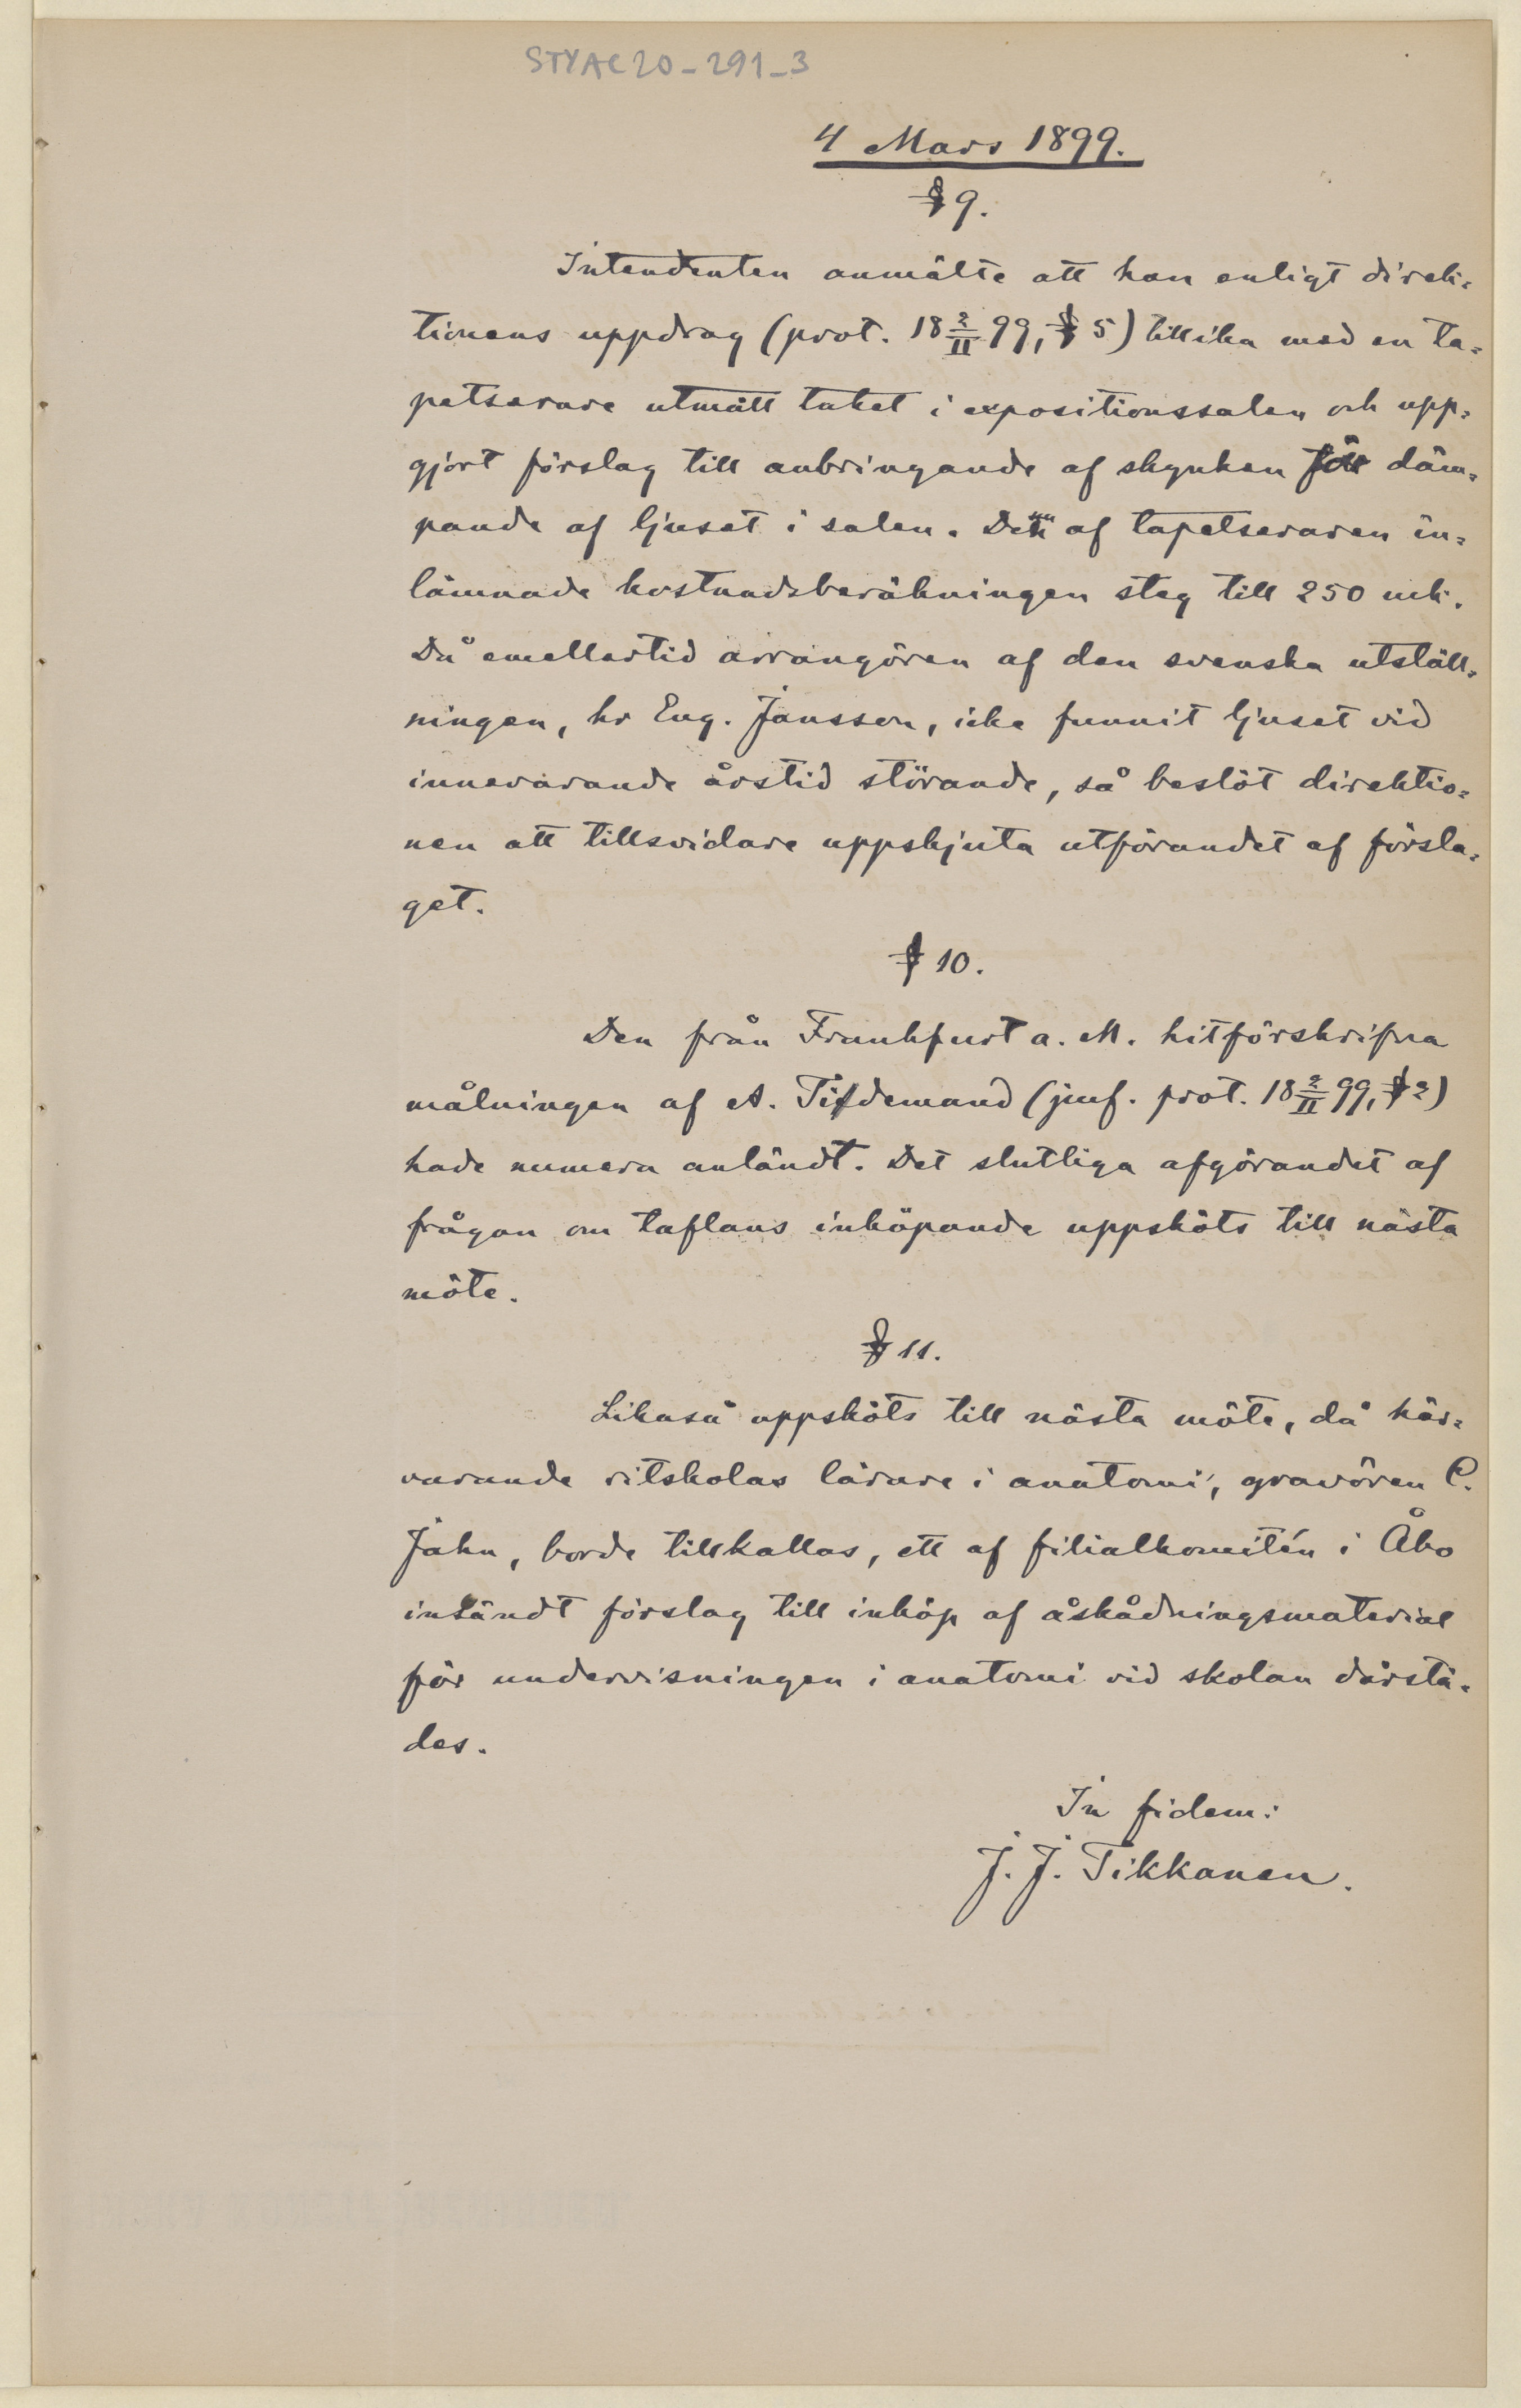 STYAC20-291-3
4 Mars 1899.
§ 9.
Intendenten anmälte att han enligt direk-
tionens uppdrag (prot. 18 2/II 99, § 5) tillika med en ta-
petserare utmätt taket i expositionssalen och upp-
gjort förslag till anbringande af skynken för däm-
pande af ljuset i salen. Den af tapetseraren in-
lämnade kostnadsberäkningen steg till 250 mk.
Då emellertid arrangören af den svenska utställ-
ningen, hr Eug. Jansson, icke funnit ljuset vid
innevarande årstid störande, så beslöt direktio-
nen att tillsvidare uppskjuta utförandet af försla-
get.
§ 10.
Den från Frankfurt a. M. hitförskrifna
målningen af A. Tidemand (jmf. prot. 18 2/II 99, § 2)
hade numera anländt. Det slutliga afgörandet af
frågan om taflans inköpande uppsköts till nästa
möte.
§ 11.
Likaså uppsköts till nästa möte, då här-
varande ritskolas lärare i anatomi, gravören C.
Jahn, borde tillkallas, ett af filialkomitén i Åbo
insändt förslag till inköp af åskådningsmaterial
för undervisningen i anatomi vid skolan därstä-
des.
In fidem:
J. J. Tikkanen.